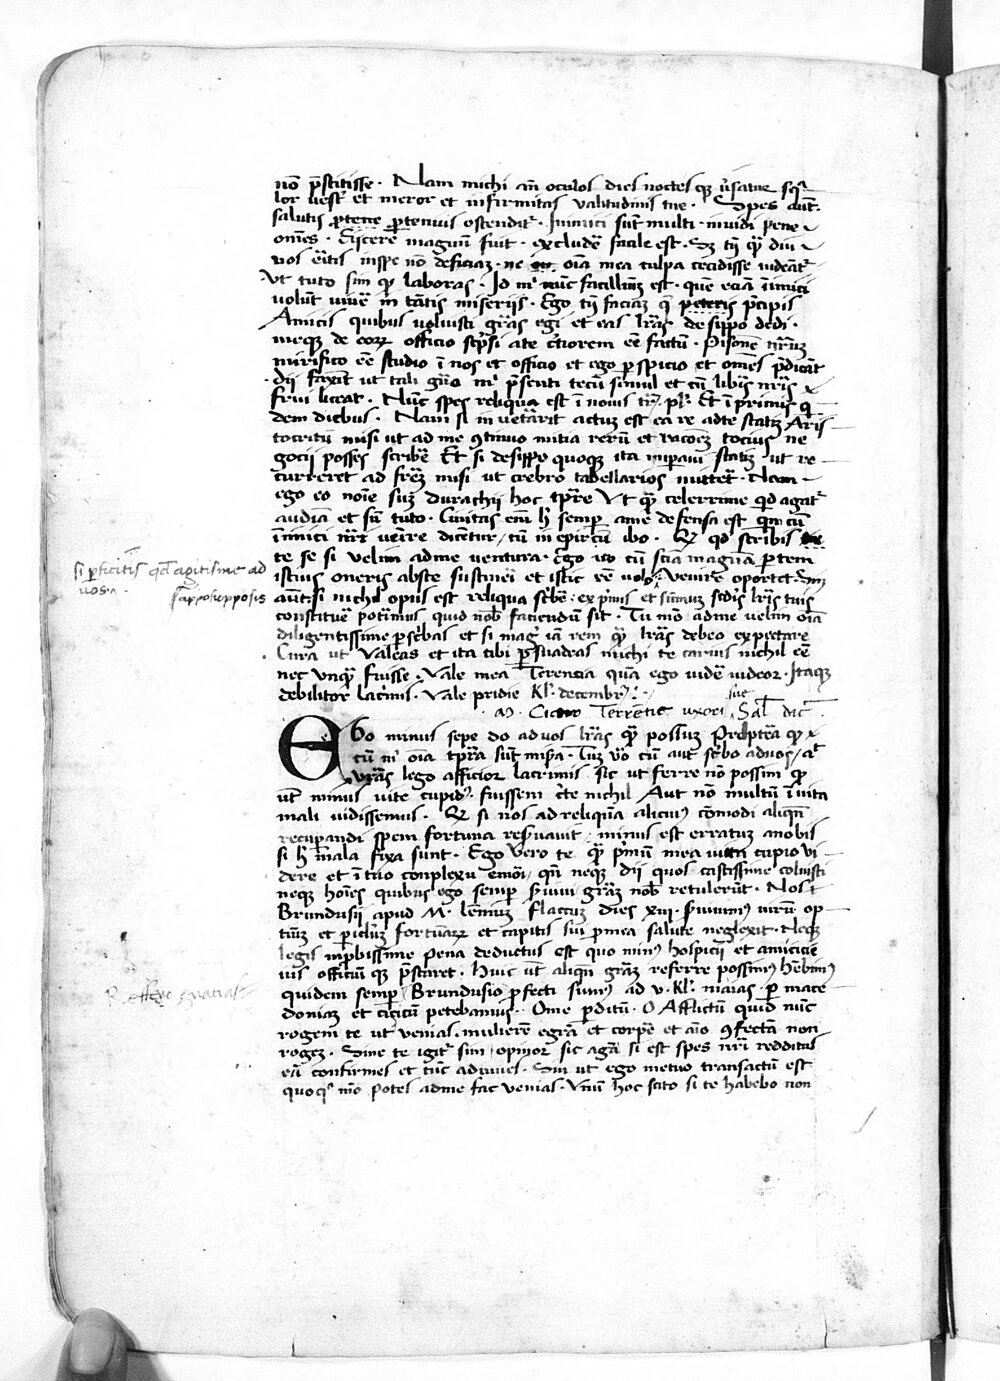 nō p̄stitisse · Nam michi añ oculos dies noctesqꝫ ūsatur sq̄-
lor uester et meror et infirmitas valitudinis tue · Spes aūt
salutis pertenuis ostenditʳ · Inimici sūt multi · inuidi pene
omēs · Eicere magnū fuit · excludē facile est · Sꝫ tn̄ qͣꝫ diu
uos eritis inspe nō deficiaꝫ · ne oīa mea culpa cecidisse uideāt
Vt tuto sim qd̄ laboras · Id mͥ nūc facillimū est · quē etiā īimici
uolūt uiuē in tātis miserijs · Ego tn̄ faciaꝫ q̄ p̄cipis
Amicis quibus uoluisti gr̄as egi et eas lr̄as desippo dedi ·
meqꝫ de eoꝝ officio sc̄psi ate c̄tiorem eē factū · Pisonē nr̄m
mirifico eē studio ī nos et officio et ego perspicio et omēs p̄dicāt
dij faxīt ut tali gn̄o mͥ p̄senti tecū simul et cū libīs nr̄is
frui liceat · Nūc spes reliqua est ī nouis tr̄ · pl̄ · Et ī primis q
dem diebus · Nam si inueterārit actuꝫ est ea re adte statiꝫ Aris
tocritū misi ut ad me 9tinuo initia rerū et rac̄oeꝫ tocius ne
gocij posses scribē Et si desippo quoqꝫ ita imperaui statiꝫ ut re
curreret ad frēꝫ misi ut crebro tabellarios mittet · Nam
ego eo noīe suꝫ durachij hoc tp̄re Vt qͣꝫ celerrime qd agatʳ
audiā et sū tuto · Ciuitas enī h̄ semper ame defensa est qm̄ cū
īimici nr̄i ueīre dicētur / tū inepircū ibo · qd scribis
te se si velim adme venturā · ego uo cū sciā magnā pertem
istius oneris abste sustineri et istic eē uolo
si perficitis qd̄ agitis me ad
uos
uenire oportet Sin
aūt si nichil opus est reliqua sc̄bē · ex p̄mis et sūmuꝫ sc̄dis lr̄is tuis
constituē poterimus quid nob̄ faciendū sit · Tu mō adme uelim oīa
diligentissime persc̄bas et si magͥ iā rem qͣꝫ lr̄as debeo expectare
Cura ut Valeas et ita tibi persuadeas michi te carius nichil eē
nec unqͣꝫ fuisse · Vale mea Terencia quā ego uidē uideor · Itaqꝫ
debilitor lacrimis · Vale pridie Kl̄ · decembr̄ ·
M · Cicero Terrentie uxori sue Sal̄ dic̄
Ego minus sepe do ad uos lr̄as qͣꝫ possuꝫ Proptera qꝫ
cū mͥ oīa tp̄ra sūt misera · Tuꝫ ūo cū aut sc̄bo aduos / aut
ur̄as lego afficior lacrimis sic ut ferre nō possim qd̄
utī minus uite cupid9 fuissem c̄te nichil Aut nō multū ī uita
mali uidissemus · si nos ad reliquā alicui9 cōmodi aliqn̄
recuperandi spem fortuna reseruauit · minus est erratuꝫ anobis
si h̄ mala fixa sunt · Ego vero te qͣꝫ p̄mū mea uita cupio vi
dere et ī tuo conplexu emori / qn̄ neqꝫ dij quos castissime coluisti
neqꝫ hoīes quibus ego semper seruiui gr̄aꝫ nob̄ retulerūt · Nos
Brundusij apud M · lēniuꝫ flaccuꝫ dies xiij · fuimus uirū op
timū et periculuꝫ fortunaꝝ et capitis sui permea salute neglexit · Neqꝫ
legis improbissime pena deductus est quo min9 hospicij et amicicie
ius officiū qꝫ p̄staret · Huic utī aliqn̄ gr̄aꝫ referre possim9 hēbim9
quidem semper / Brundusio perfecti sum9 ad v · Kl̄ · maias · per mace
doniaꝫ et ciziciū petebamus · Ome perditū · O Afflictū quid nūc
rogem te ut venias · mulierē egrā et corpē et aīo 9fectā non
rogeꝫ · Sine te igitʳ sim / opinor sic agā si est spes nr̄i redditus
eū confirmes et rē adiuues · Sin ut ego metuo transactū est
quoqꝰ mō potes adme fac venias · Vnū hoc scito si te habebo non